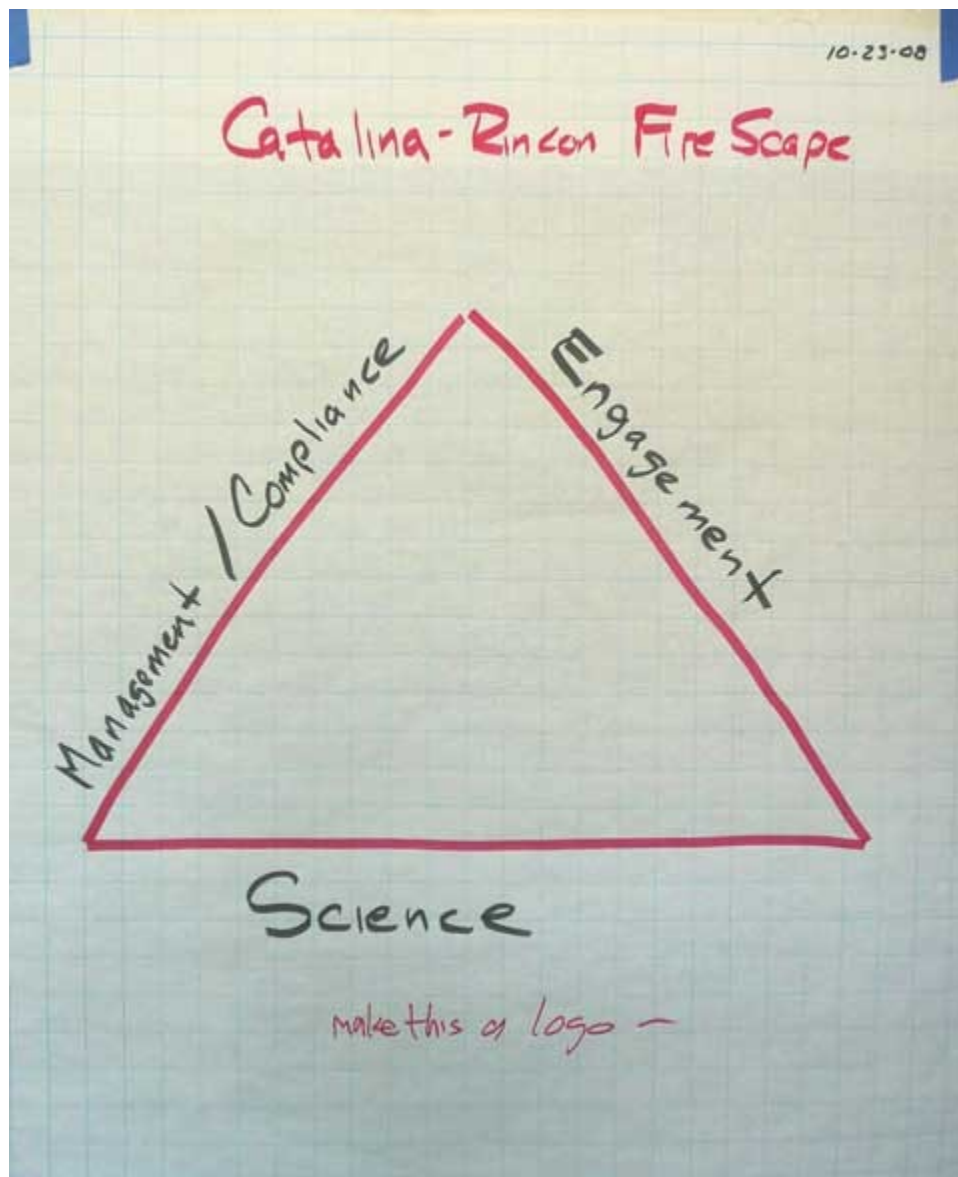 10-23-08
Catalina-Rincon FireScape
Management / Compliance
Engagement
Science
make this a logo —